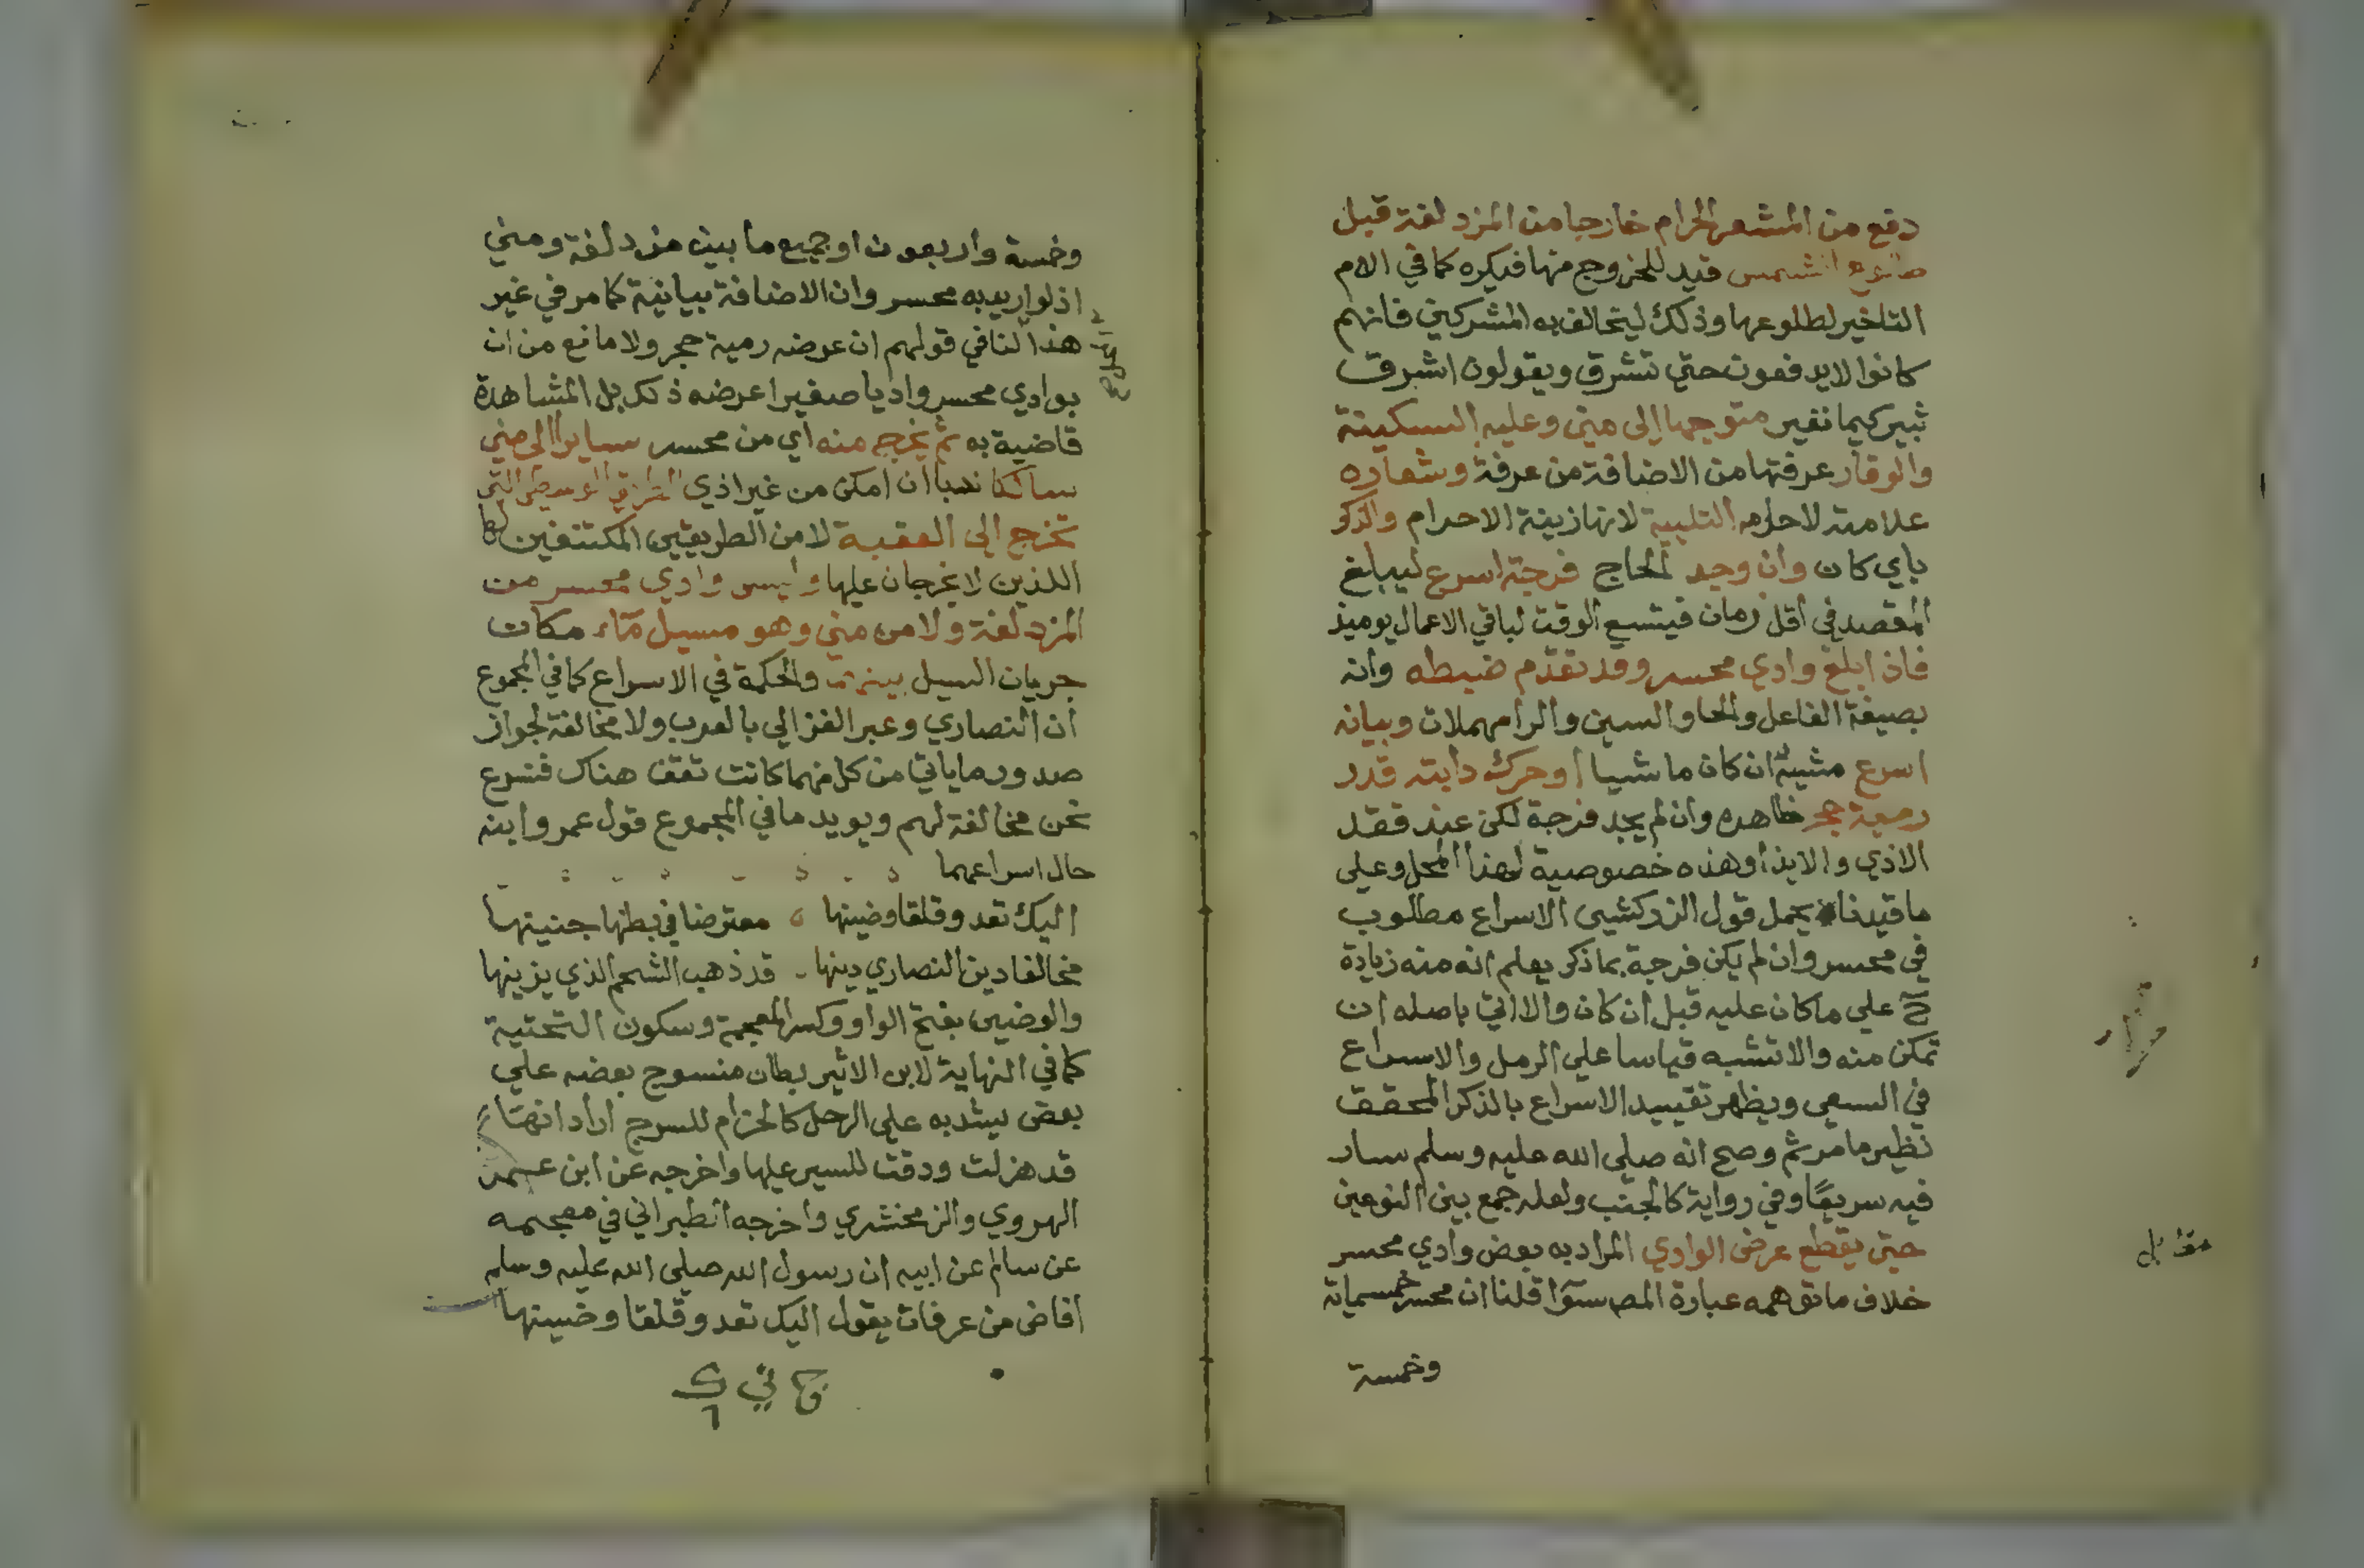 دفع من المشعر الحرام خارجا من المزدلفة قبل
طلوع الشمس قيد للخروج منها فيكره كما في الام
التاخير لطلوعها وذلك ليتخالف به المشركين فانهم
كانوا لا يدفعون حتي تشرق ويقولون اشرق
ثبير كيما نغير متوجها الى منى وعليه السكينة
والوقار عرفتها من الاضافة من عرفة وشعاره
علامته لاحرامه التلبية لانها زينة الاحرام والذكر
باي كان وان وجد الحاج فرجة اسرع ليبلغ
المقصد في اقل زمان فيتسع الوقت لباقي الاعمال يوميذ
فاذا بلغ وادي محسر وقد تقدم ضبطه وانه
بصيغة الفاعل والحا والسين والرا مهملات وبيانه
اسرع مشية ان كان ماشيا او حرك دابته قدر
رمية حجر ظاهره وان لم يجد فرجة لكن عند فقد
الاذي والايذا وهذه خصوصية لهذا المحل وعلي
ما قيدنا يحمل قول الزركشي الاسراع مطلوب
في محسر وان لم يكن فرجة بما ذكر يعلم انه منه زيادة
ح علي ما كان عليه قبل ان كان والا اتي باصله ان
تمكن منه والا تشبه قياسا علي الرمل والاسراع
في السعي ويظهر تقييد الاسراع بالذكر المحقق
نظير ما مر ثم وصح انه صلي الله عليه وسلم سار
فيه سريعا وفي رواية كالجنب ولعله جمع بين النوعين
حتي يقطع عرض الوادي المراد به بعض وادي محسر
خلاف ما توهمه عبارة المص سوآ قلنا ان محسر خمسماية
وخمسة
مقابل
وخمسة واربعون او جميع ما بين مزدلفة ومني
اذ لو اريد به محسر وان الاضافة بيانية كما مر في غير
هذا لنا في قولهم ان عرضه رمية حجر ولا مانع من ان
بوادي محسر واديا صغيرا عرضه ذلك بل المشاهدة
قاضية به ثم يخرج منه اي من محسر سايرا الى مني
سالكا ندبا ان امكن من غير اذي الطريق الوسطى التي
تخرج الى العقبة لا من الطريقين المكتنفين لها
اللذين لا يخرجان عليها وليس وادي محسر من
المزدلفة ولا من مني وهو مسيل مآء مكان
جريان السيل بينهما والحكمة في الاسراع كما في المجموع
ان النصاري وعبر الغزالي بالعرب ولا مخالفة لجواز
صدور ما ياتي من كل منهما كانت تقف هناك فنسرع
نحن مخالفة لهم ويويد ما في المجموع قول عمر وابنه
حال اسراعهما
اليك تعدو قلقا وضينها معترضا في بطنها جنينها
مخالفا دين النصاري دينها قد ذهب الشحم الذي يزينها
والوضين بفتح الواو وكسر المعجمة وسكون التحتية
كما في النهاية لابن الاثير بطان منسوج بعضه علي
بعض يشد به علي الرحل كالحزام للسرج اراد انها
قد هزلت ودقت للسير عليها واخرجه عن ابن عمر
الهروي والزمخشري واخرجه الطبراني في معجمه
عن سالم عن ابيه ان رسول الله صلي الله عليه وسلم
افاض من عرفات يقول اليك تعدو قلقا وضينها